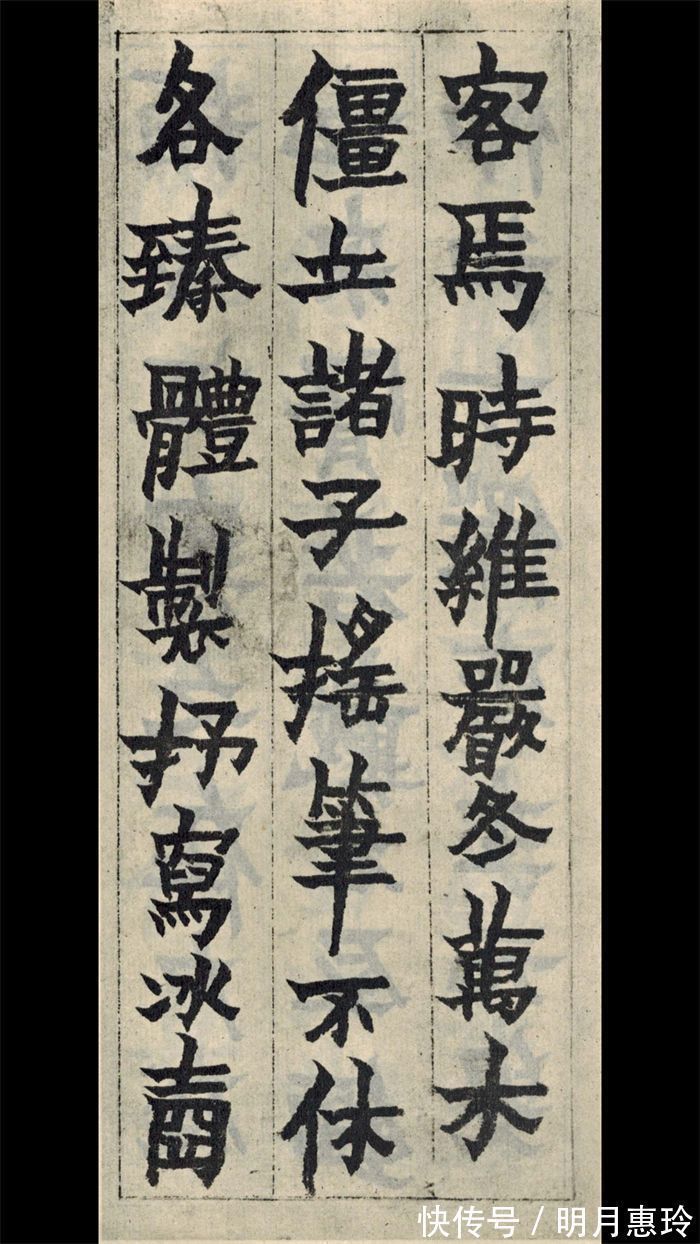 客焉時維嚴冬萬木
僵立諸子搖筆不休
各臻體製抒寫冰
快传号/明月惠玲